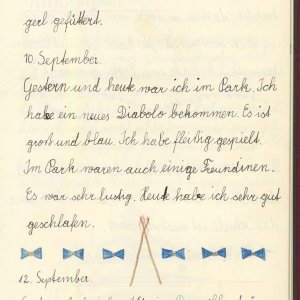 gerl gefüttert.
10. September.
Gestern und heute war ich im Park. Ich
habe ein neues Diabolo bekommen. Es ist
groß und blau. Ich habe fleißig gespielt.
Im Park waren auch einige Freundinen.
Es war sehr lustig. Heute habe ich sehr gut
geschlafen.
12. September.